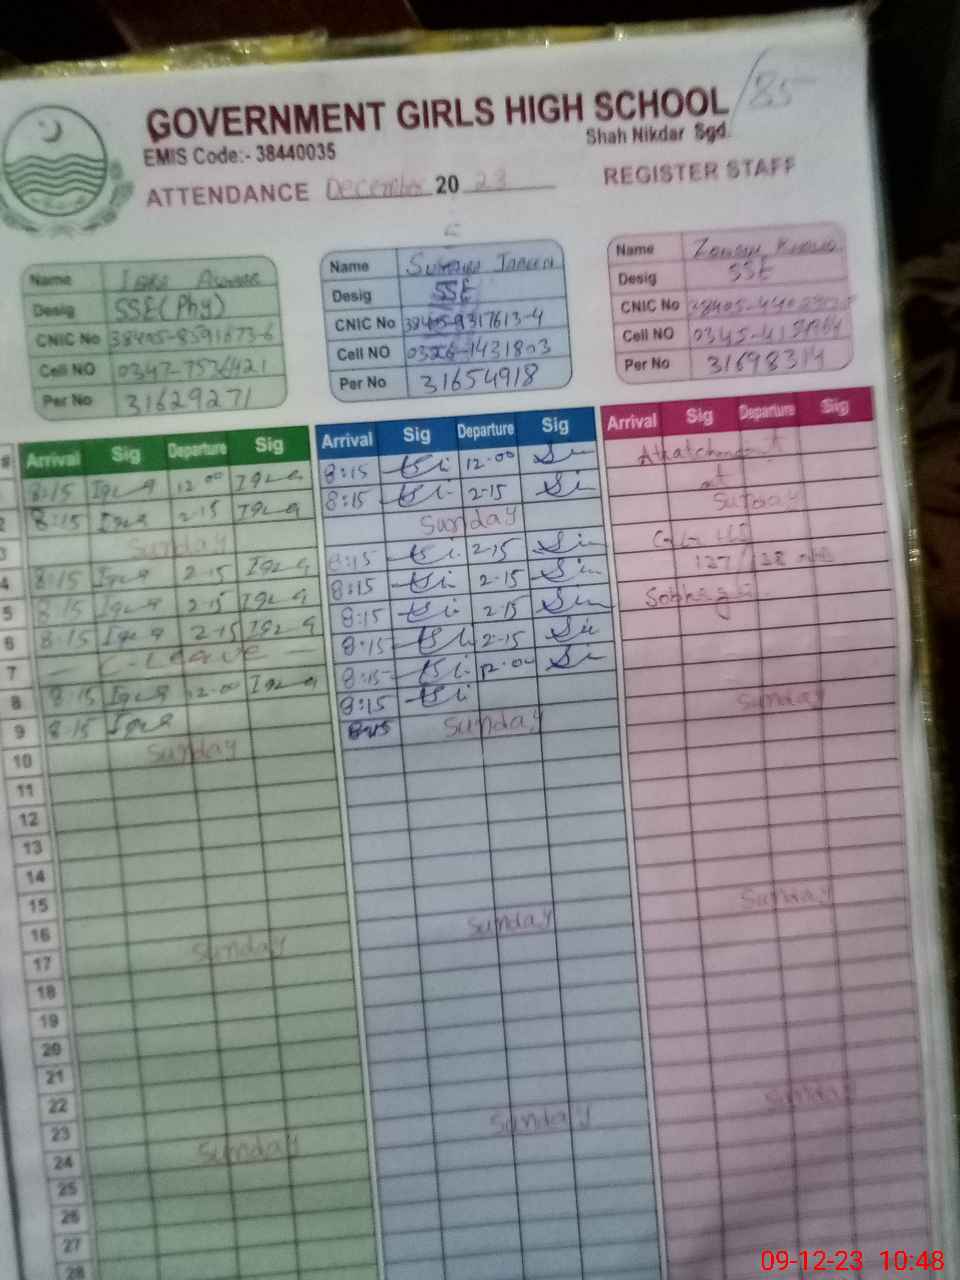 185
GOVERNMENT GIRLS HIGH SCHOOL
Shah Nikdar Sgd.
EMIS Code:- 38440035
ATTENDANCE December 20 23 REGISTER STAFF
Name
Desig SSE(Phy)
CNIC No 38405-8591673-6
Cell NO
Per No 31629271
Name Sumaira
Desig SSE
CNIC No 38405-9317613-4
Cell NO 0326-1431803
Per No 31654918
Name
Desig SSE
CNIC No
Cell NO
Per No 31698314
# Arrival Sig Departure Sig
8:15 Iqra 12-00 Iqra
8:15 Iqra 2-15 Iqra
Sunday
8:15 Iqra 2-15 Iqra
8:15 Iqra 2-15 Iqra
8:15 Iqra 2-15 Iqra
C-Leave
8:15 Iqra 12-00 Iqra
8:15 Iqra
Sunday
Sunday
Sunday
Arrival Sig Departure Sig
8:15 12-00
8:15 2-15
Sunday
8:15 2-15
8:15 2-15
8:15 2-15
8:15 2-15
8:15 12-00
8:15
8:15 Sunday
Sunday
Sunday
Arrival Sig Departure Sig
at
Sunday
Sunday
Sunday
Sunday
1
2
3
4
5
6
7
8
9
10
11
12
13
14
15
16
17
18
19
20
21
22
23
24
25
26
27
28
09-12-23 10:48